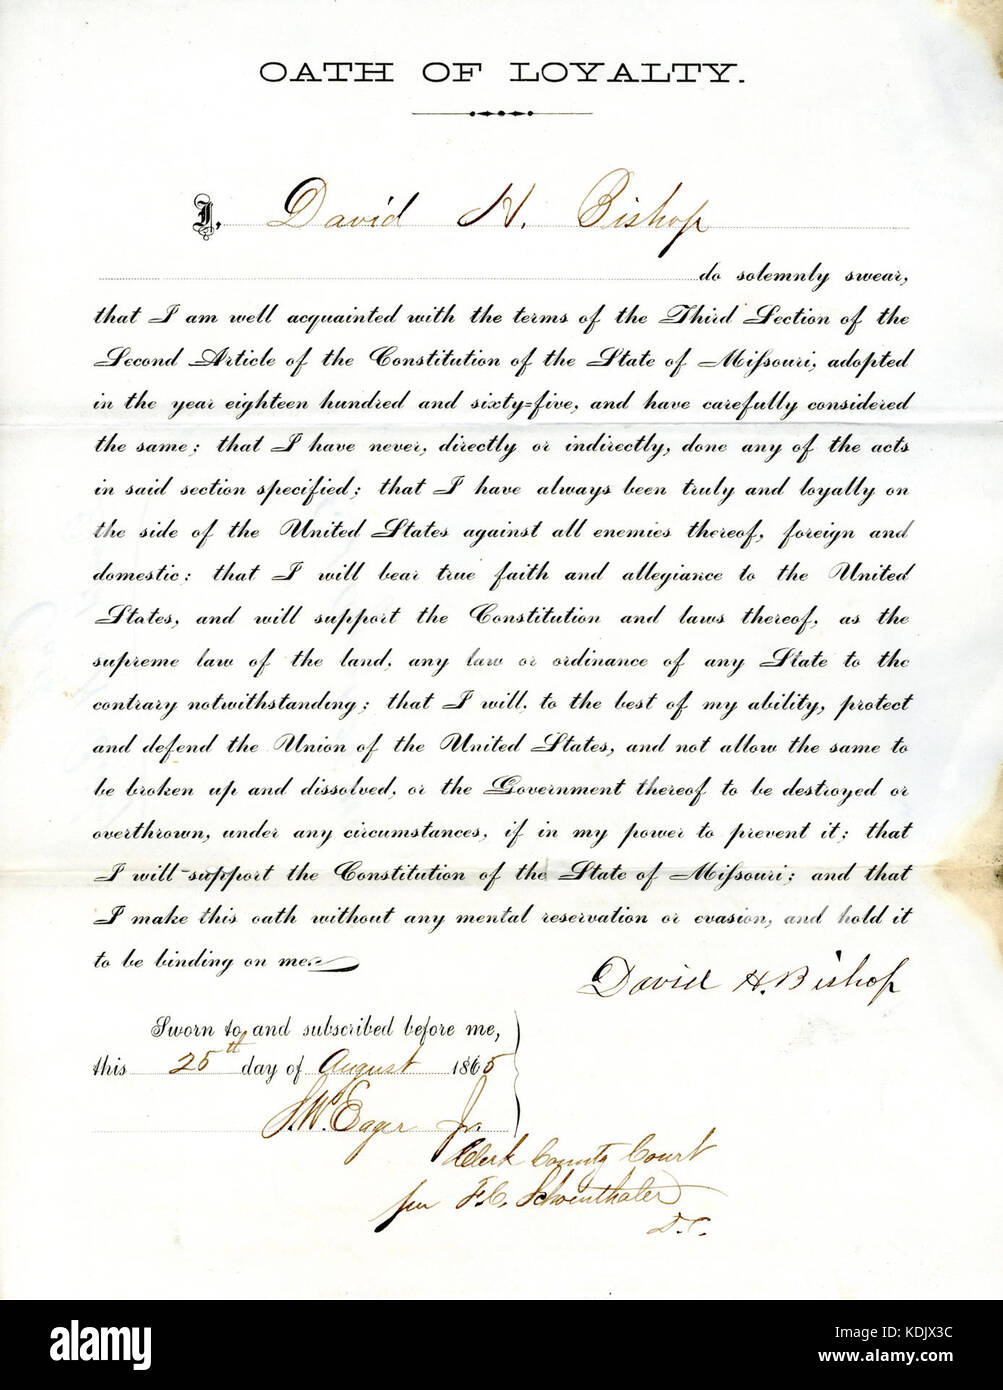 OATH OF LOYALTY.
I, David H. Bishop
do solemnly swear,
that I am well acquainted with the terms of the Third Section of the
Second Article of the Constitution of the State of Miſsouri, adopted
in the year eighteen hundred and sixty=five, and have carefully considered
the same; that I have never, directly or indirectly, done any of the acts
in said section specified; that I have always been truly and loyally on
the side of the United States against all enemies thereof, foreign and
domestic: that I will bear true faith and allegiance to the United
States, and will support the Constitution and laws thereof, as the
supreme law of the land, any law or ordinance of any State to the
contrary notwithstanding; that I will, to the best of my ability, protect
and defend the Union of the United States, and not allow the same to
be broken up and dissolved, or the Government thereof to be destroyed or
overthrown, under any circumstances, if in my power to prevent it; that
I will support the Constitution of the State of Miſsouri; and that
I make this oath without any mental reservation or evasion, and hold it
to be binding on me.
David H. Bishop
Sworn to and subscribed before me,
this 25th day of August 1865
S.W. Eager Jr.
Clerk County Court
per F.C. Schoenthaler
D.C.
alamy
Image ID: KDJX3C
www.alamy.com